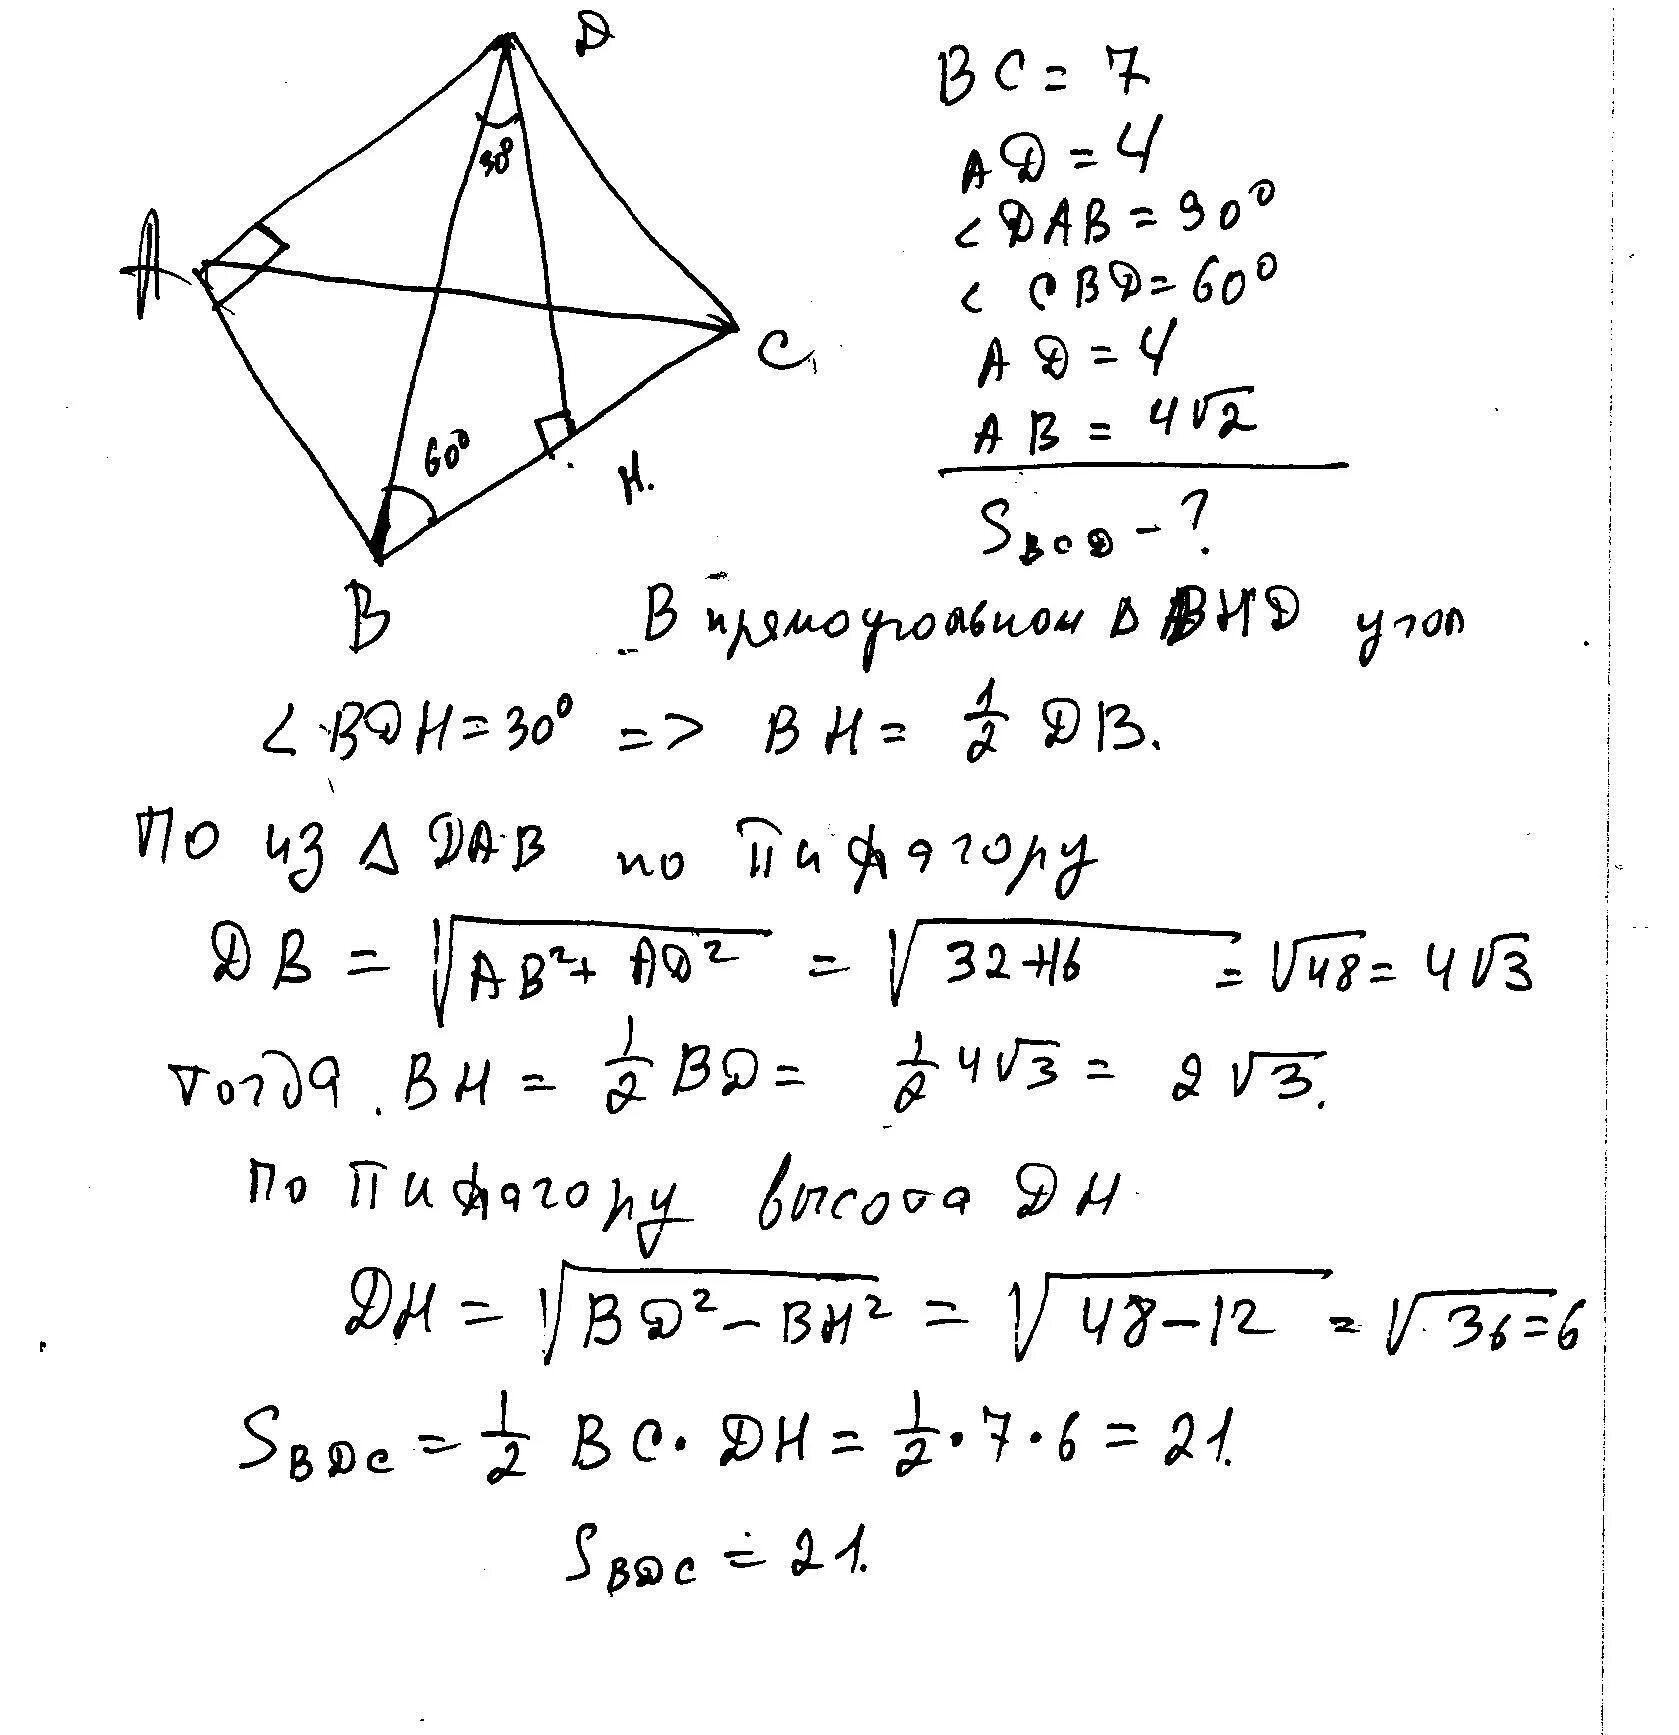 D
30°
A
C
60°
H.
B
BC = 7
AD = 4
< DAB = 90°
< CBD = 60°
AD = 4
AB = 4√2
S BCD - ?
В прямоугольном Δ BHD угол
< BDH = 30° => BH = 1/2 DB.
По из Δ DAB по Пифагору
DB = √AB²+ AD² = √32+16 = √48 = 4√3
тогда. BH = 1/2 BD = 1/2 4√3 = 2√3.
по Пифагору высота DH
DH = √BD² - BH² = √48 - 12 = √36 = 6
S BDC = 1/2 BC · DH = 1/2 · 7 · 6 = 21.
S BDC = 21.